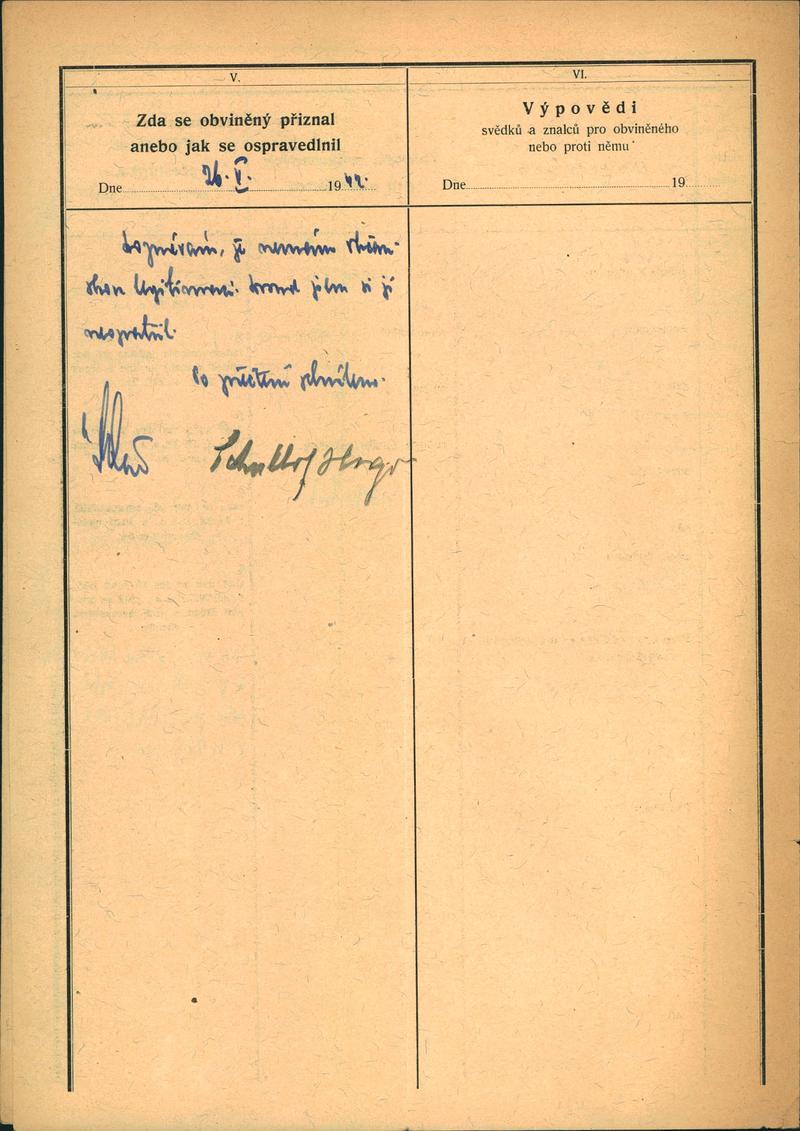 V.
Zda se obviněný přiznal
anebo jak se ospravedlnil
Dne 26. V. 1942.
doznávám, že nemám občan-
skou legitimaci. dosud jsem si ji
neopatřil.
Po přečtení schváleno.
Schulhof Hugo
VI.
Výpovědi
svědků a znalců pro obviněného
nebo proti němu
Dne 19